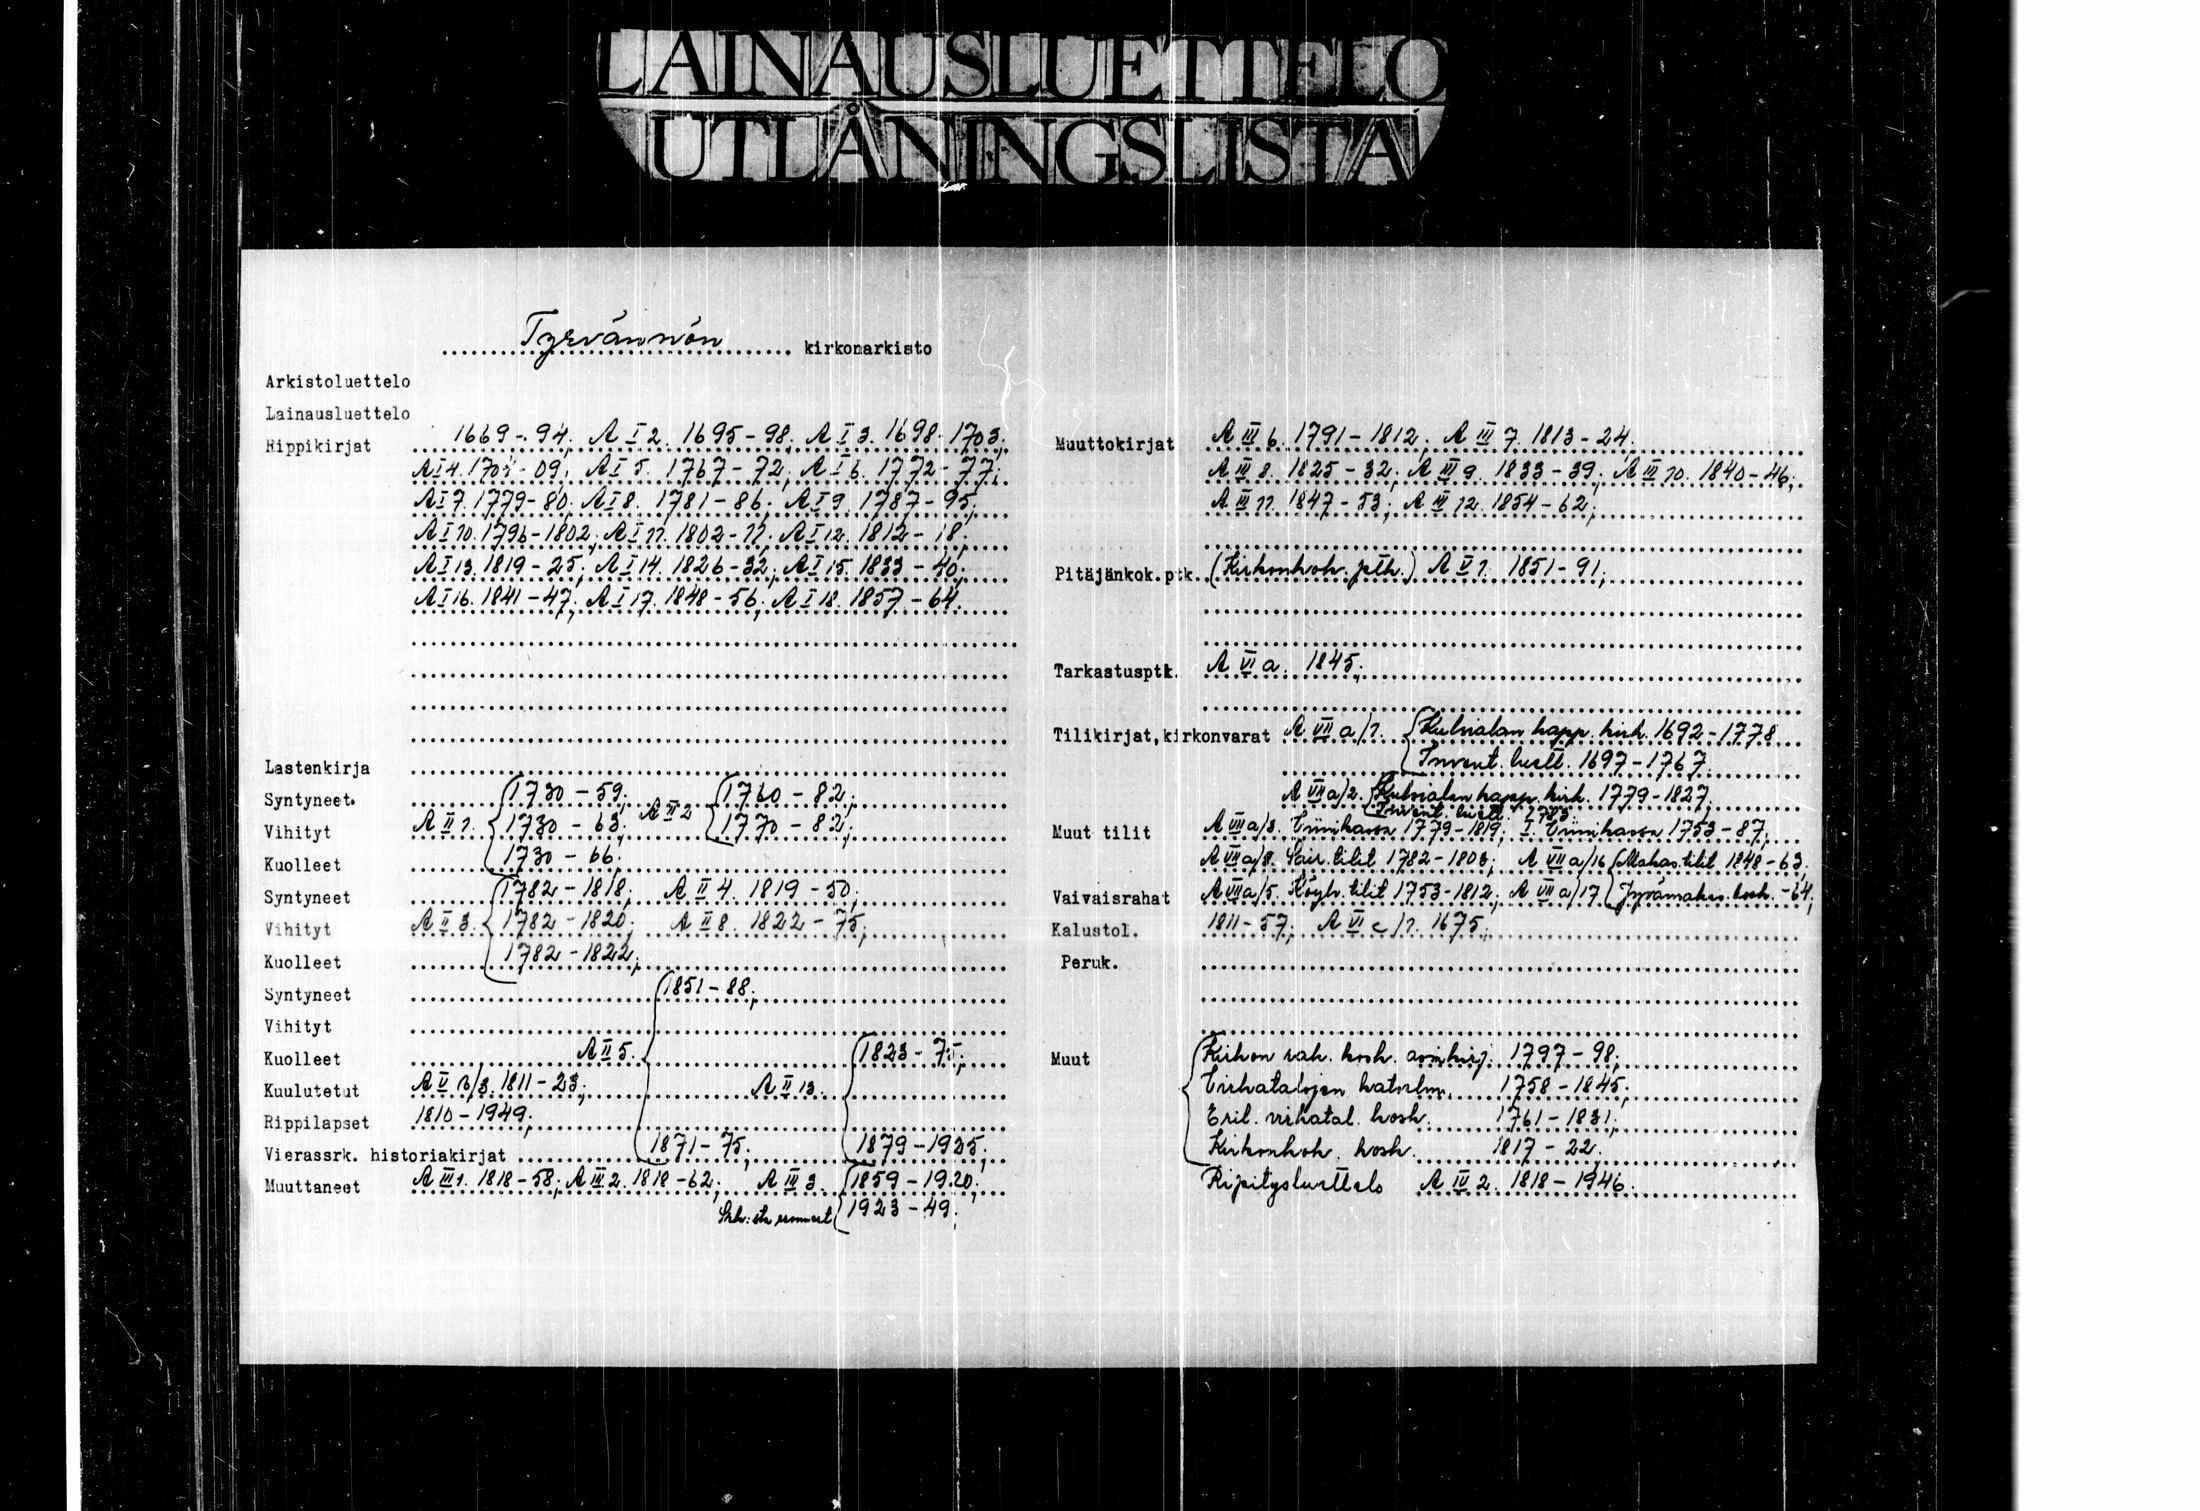 LAINAUSLUETTELO
UTLÅNINGSLISTA
Tyrvännön kirkonarkisto
Arkistoluettelo
Lainausluettelo
Rippikirjat 1669-94; A I 2. 1695-98; A I 3. 1698-1703;
A I 4. 1704-09; A I 5. 1767-72; A I 6. 1772-77;
A I 7. 1779-80; A I 8. 1781-86; A I 9. 1787-95;
A I 10. 1796-1802; A I 11. 1802-11; A I 12. 1812-18;
A I 13. 1819-25; A I 14. 1826-32; A I 15. 1833-40;
A I 16. 1841-47; A I 17. 1848-56; A I 18. 1857-64.
Lastenkirja
Syntyneet. 1730-59; A II 2 1760-82;
Vihityt A II 1. 1730-63; 1770-82;
Kuolleet 1730-66.
Syntyneet 1782-1818; A II 4. 1819-50;
Vihityt A II 3. 1782-1820; A II 8. 1822-75;
Kuolleet 1782-1822;
Syntyneet 1851-88;
Vihityt
Kuolleet A II 5. 1823-75;
Kuulutetut A V 1811-23; A II 13.
Rippilapset 1810-1949;
Vierassrk. historiakirjat 1871-75; 1879-1925;
Muuttaneet A III 1. 1818-58; A III 2. 1818-62; A III 3. 1859-1920;
1923-49;
Muuttokirjat A III 6. 1791-1812; A III 7. 1813-24.
A III 8. 1825-32; A III 9. 1833-39; A III 10. 1840-46;
A III 11. 1847-53; A III 12. 1854-62;
Pitäjänkok.ptk. (Kirkonkok. ptk.) A V 1. 1851-91;
Tarkastusptk. A VI a. 1845;
Tilikirjat, kirkonvarat A VII a/1. Kulsialan kapp. kirk. 1692-1778
Invent. luett. 1697-1767.
A VII a/2. Kulsialan kapp. kirk. 1779-1827.
Invent. luett. 1783
Muut tilit A VII a/3. 1779-1819; 1753-87;
A VII a/8. Sair. tilit 1782-1808; A VII a/16 Makas. tilit 1848-63;
Vaivaisrahat A VII a/5. Köyh. tilit 1753-1812; A VII a/17 Jyvämakas. kosk. -64;
Kalustol. 1811-57; A VI c/1. 1675;
Peruk.
Muut Kirkon rah. kosk. asiakirj. 1797-98;
Virkatalojen katselm. 1758-1845;
Eril. virkatal. kosk. 1761-1831;
Kirkonkok. kosk. 1817-22.
Ripitysluettelo A IV 2. 1818-1946.